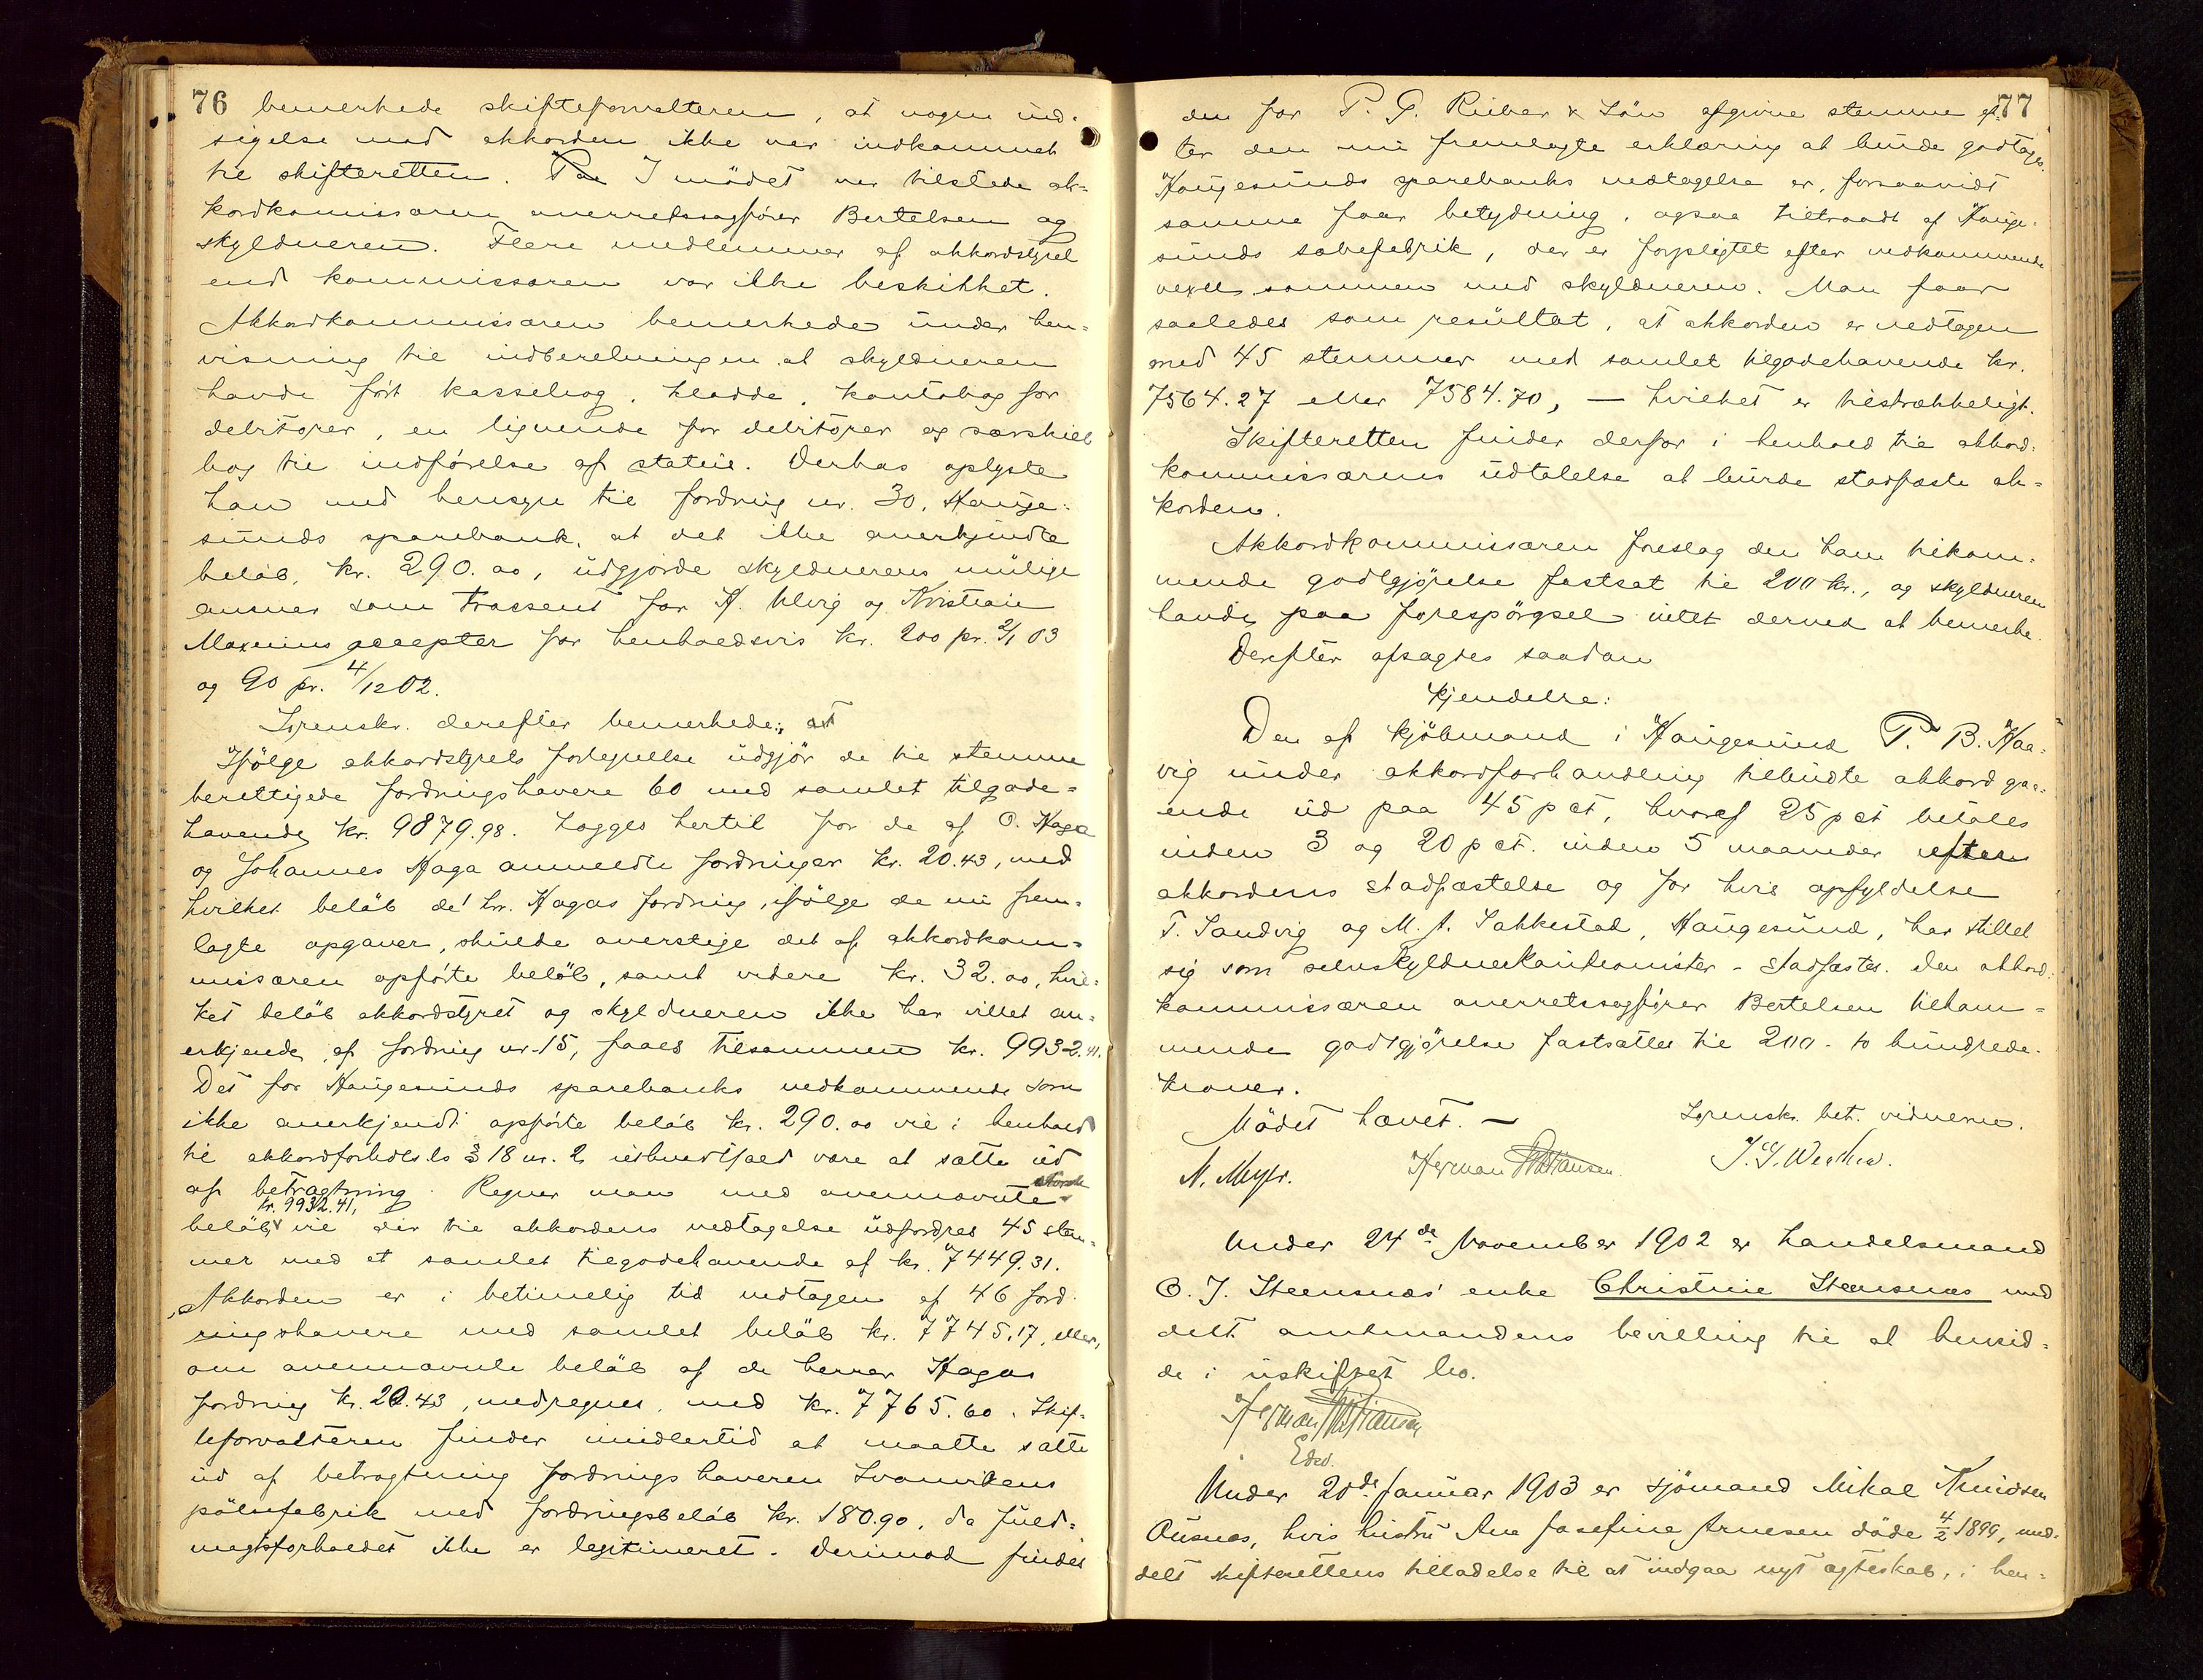 76 bemerkede skifteforvalteren, at nogen ind-
sigelse mod akkorden ikke var indkommet
til skifteretten. I mödet var tilstede ak-
kordkomissæren overretssagfører Bertelsen og
skyldneren. Flere medlemmer af akkordstyret
end kommissæren var ikke beskikket.
Akkordkommissæren bemerkede under hen-
visning til indberetningen at skyldneren
havde fört kassebog, kladde, kontobog for
debitorer, en lignende for debitorer og særskilt
bog til indförelse af status. Derhos oplyste
han med hensyn til fordring nr. 30, Hauge-
sunds sparebank, at det ikke anerkjendte
belöb, kr. 290.00, udgjorde skyldnerens mulige
ansvar som trassent for H. Alvig og Kristian
accepter for henholdsvis kr. 200 pr. 2/1 03
og 90 pr. 4/12 02.
Sorenskr. derefter bemerkede: at
Ifölge akkordstyrets fortegnelse udgjör de til stemme
berettigede fordringshavere 60 med samlet tilgode-
havende kr. 9879.98. Lægges hertil for de af O. Haga
og Johannes Haga anmeldte fordringer kr. 20.43, med
hvilket belöb de hr. Hagas fordring, ifölge de nu frem-
lagte opgaver, skulde overstige det af akkordkom-
missæren opförte belöb, samt videre kr. 32.00, hvil-
ket belöb akkordstyret og skyldneren ikke har villet an-
erkjende af fordring nr. 15, faaes tilsammen kr. 9932.41.
Det for Haugesunds sparebanks vedkommende som
ikke anerkjendt opförte belöb kr. 290.00 vil i henhold
til akkordforhdls.ls § 18 nr. 2 være at sætte ud
af betragtning. Regner man med ovennævnte störste
belöb kr. 9932.41, vil der til akkordens vedtagelse udfordres 45 stem-
mer med et samlet tilgodehavende af kr. 7449.31.
Akkorden er i betimelig tid vedtagen af 46 ford-
ringshavere med samlet belöb kr. 7745.17, eller,
om ovennævnte belöb af de herrer Hagas
fordring kr. 20.43, medregnes, med kr. 7765.60. Skif-
teforvalteren finder imidlertid at maatte sætte
ud af betragtning fordringshaveren Svanvikens
pölsefabrik med fordringsbelöb kr. 180.90, da fuld-
magtsforholdet ikke er legitimeret. Derimod findes
77
den for P. G. Rieber & Sön afgivne stemme ef-
ter den nu fremlagte erklæring at burde godtages.
Haugesunds sparebanks vedtagelse er, forsaavidt
samme faar betydning, ogsaa tiltraadt af Hauge-
sunds sæbefabrik, der er forpligtet efter vedkommende
vexel sammen med skyldneren. Man faar
saaledes som resultat, at akkorden er vedtagen
med 45 stemmer med samlet tilgodehavende kr.
7564.27 eller 7584.70, — hvilket er tilstrækkeligt.
Skifteretten finder derfor i henhold til akkord-
kommissærens udtalelse at burde stadfæste ak-
korden.
Akkordkommissæren foreslog den ham tilkom-
mende godtgjörelse fastsat til 200 kr., og skyldneren
havde paa forespörgsel intet derved at bemerke.
Derefter afsagdes saadan
kjendelse:
Den af kjöbmand i Haugesund P. B. Haa-
vig under akkordforhandling tilbudte akkord gaa-
ende ud paa 45 pct, hvoraf 25 pct betales
inden 3 og 20 pct. inden 5 maaneder efter
akkordens stadfæstelse og for hvis opfyldelse
T. Sandvig og M. A. Sakkestad, Haugesund, har stillet
sig som selvskyldnerkautionister - stadfæstes. Den akkord-
kommissæren overretssagfører Bertelsen tilkom-
mende godtgjörelse fastsættes til 200 - to hundrede -
kroner.
Mödet hævet. — Sorenskr. bet. vidnerne.
N. Meyer. Herman Kristiansen.
Under 24de November 1902 er handelsmand
O. J. Steensnæs' enke Christine Steensnæs med
delt amtmandens bevilling til at hensid-
de i uskiftet bo.
Herman Kristiansen
Edsv.
Under 20de Januar 1903 er sjömand Mikal Knudsen
Ausnes, hvis hustru Ane Josefine Arnesen döde 4/2 1899, med-
delt skifterettens tilladelse til at indgaa nyt ægteskab, i hen-